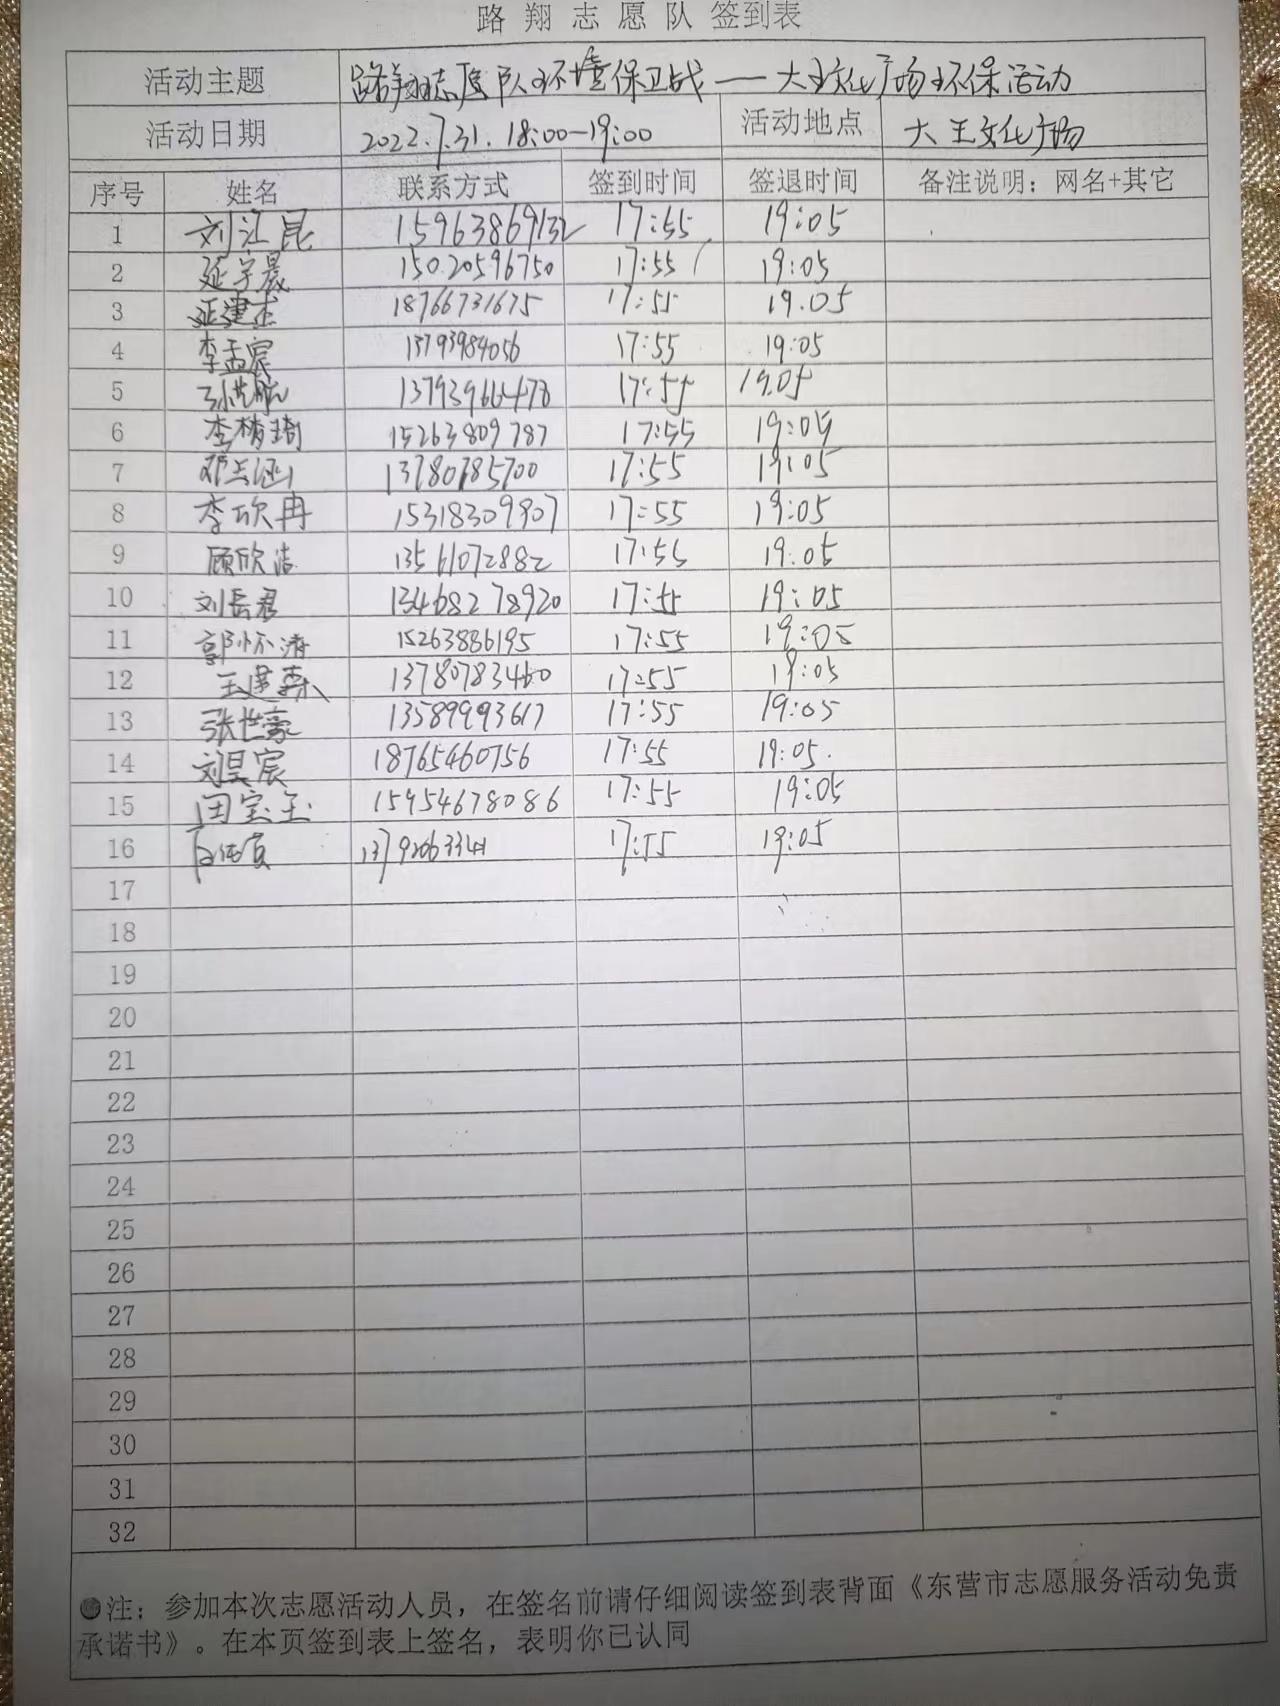 路 翔 志 愿 队 签到表
活动主题 路翔志愿队环境保卫战——大王文化广场环保活动
活动日期 2022.7.31. 18:00—19:00 活动地点 大王文化广场
序号 姓名 联系方式 签到时间 签退时间 备注说明：网名+其它
1 刘江昆 15963869132 17:55 19:05
2 延宇晨 15020596750 17:55 19:05
3 延建杰 18766731675 17:55 19.05
4 李孟宸 13793984056 17:55 19:05
5 17:55 19:05
6 李精琦 15263809787 17:55 19:05
7 邓云涵 13780785700 17:55 19:05
8 李欣冉 15318309907 17:55 19:05
9 顾欣洁 13561072882 17:55 19:05
10 刘长君 13468278920 17:55 19:05
11 郭怀清 15263886195 17:55 19:05
12 王建森 13780783460 17:55 19:05
13 张世豪 13589993617 17:55 19:05
14 刘昊宸 18765460756 17:55 19:05.
15 田宝玉 15954678086 17:55 19:05
16 17:55 19:05
17
18
19
20
21
22
23
24
25
26
27
28
29
30
31
32
●注：参加本次志愿活动人员，在签名前请仔细阅读签到表背面《东营市志愿服务活动免责
承诺书》。在本页签到表上签名，表明你已认同